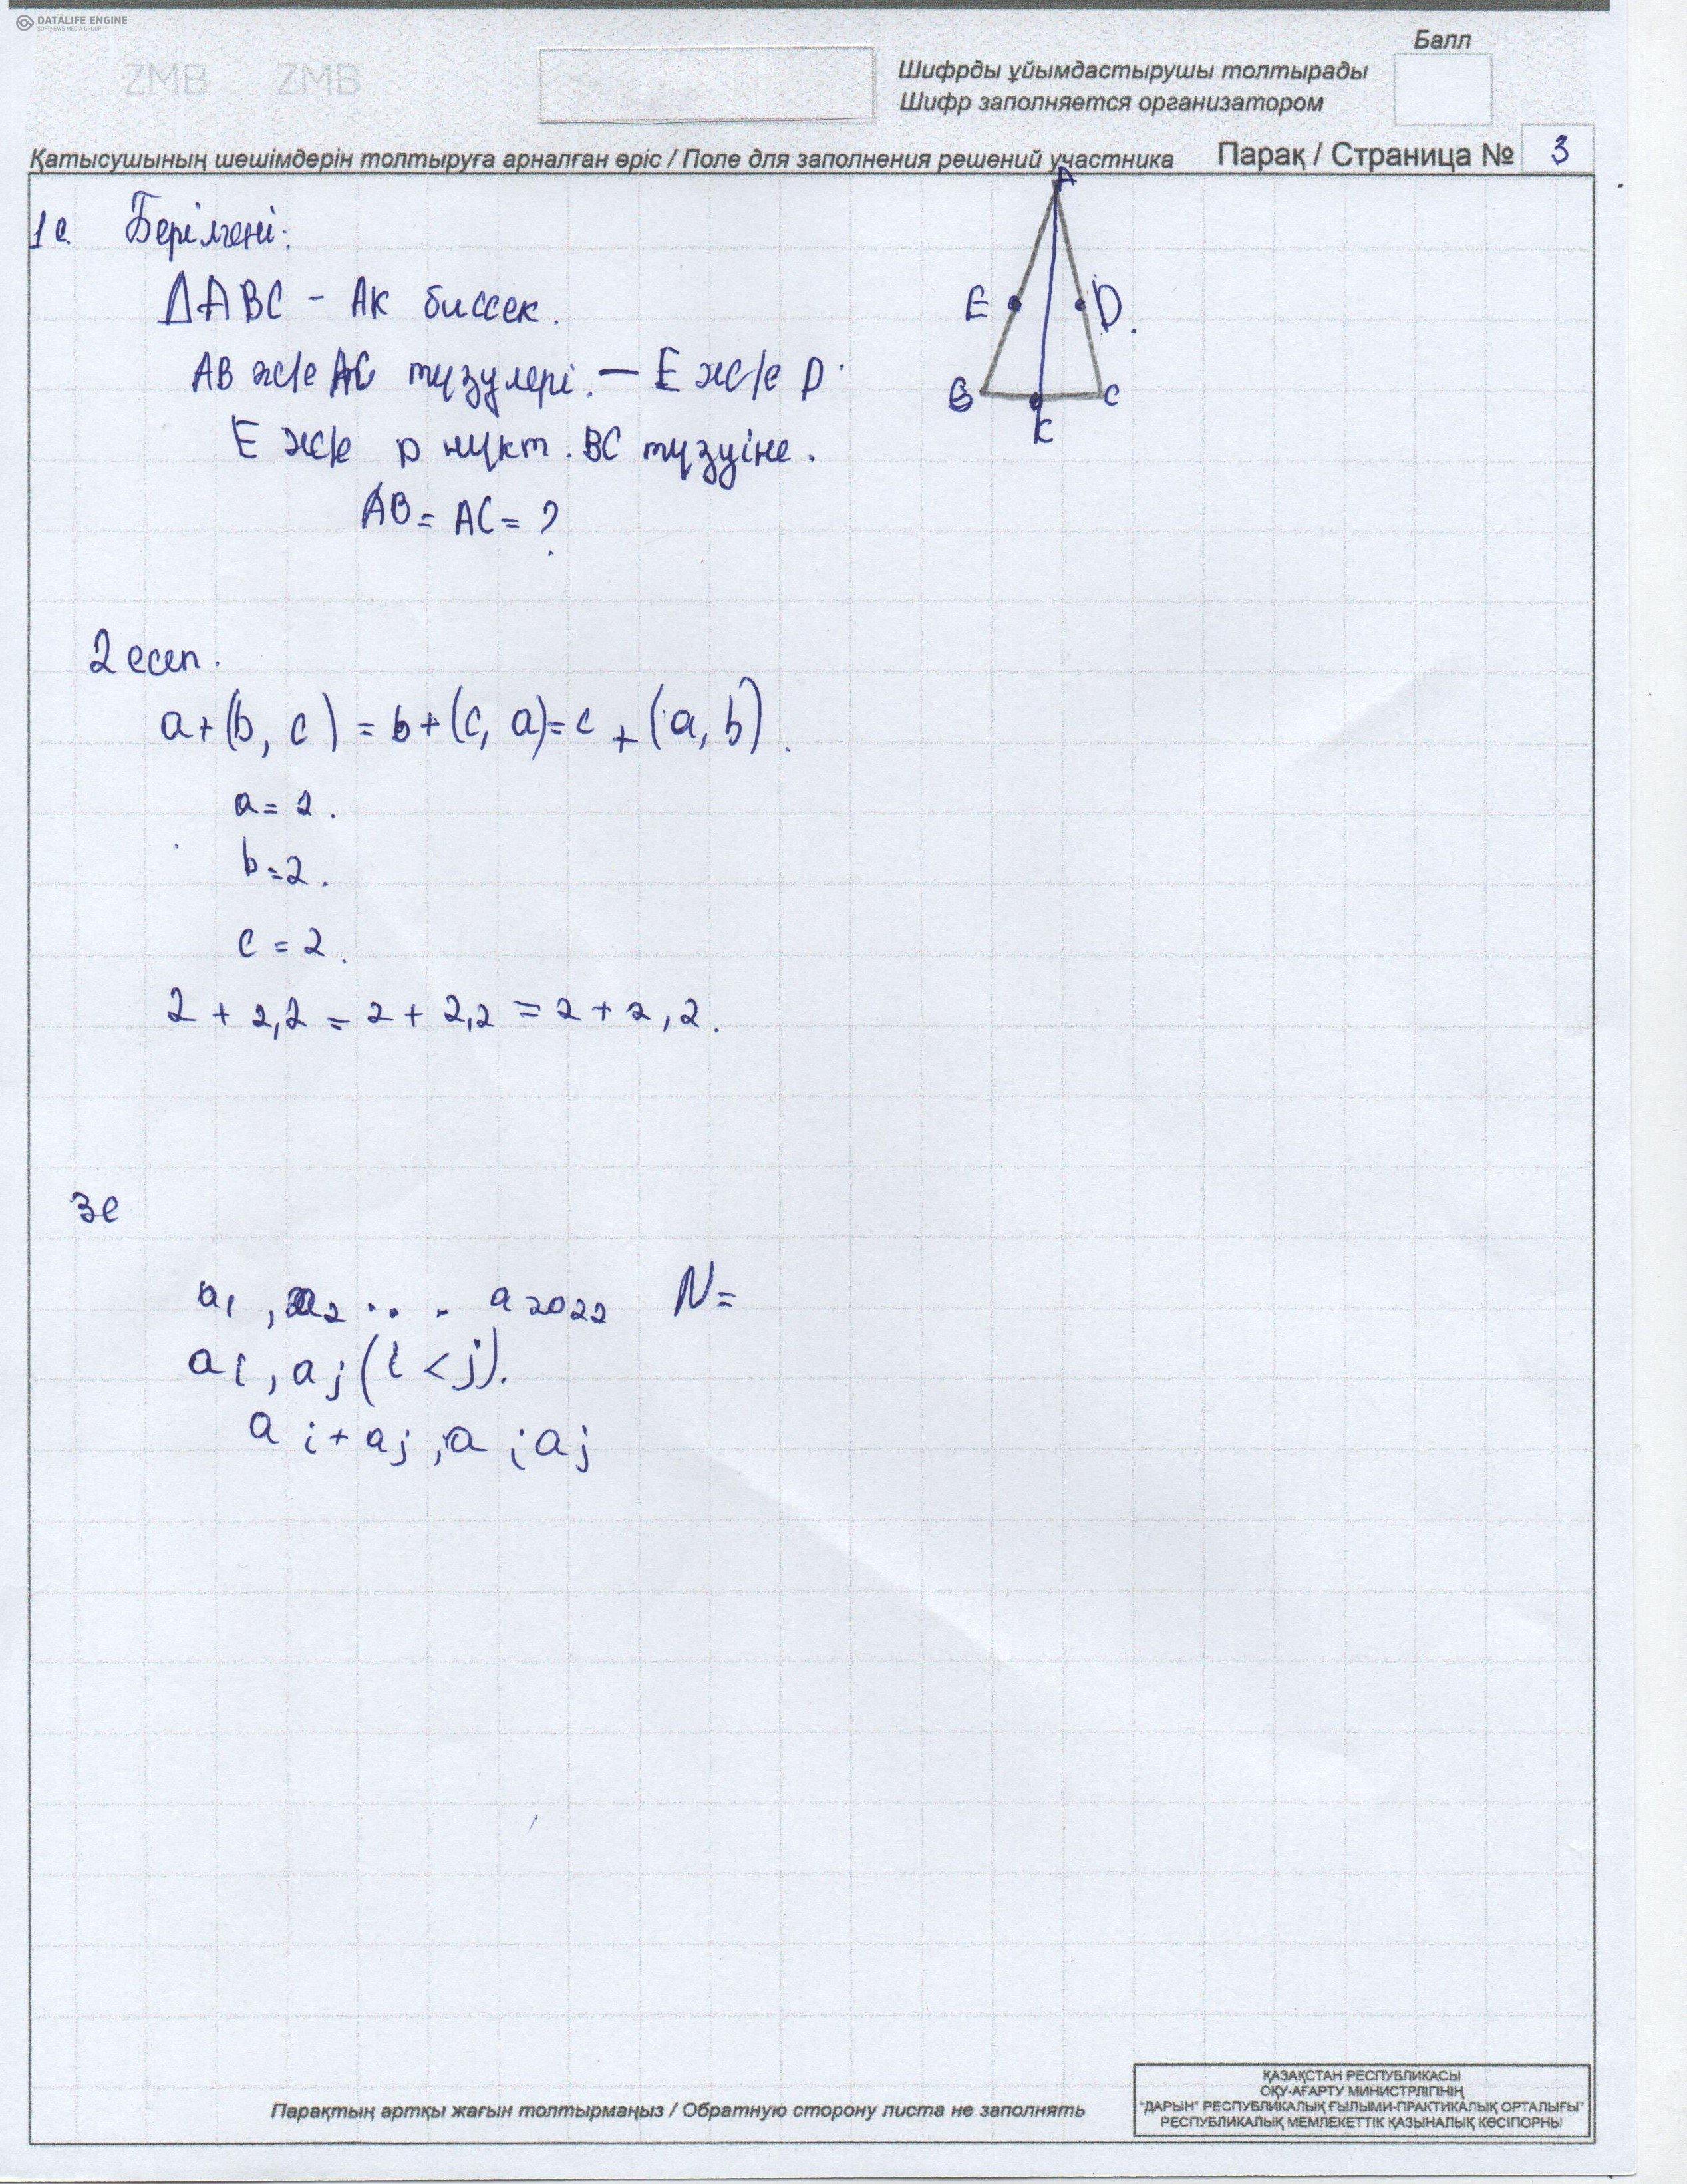 DATALIFE ENGINE
SOFTNEWS MEDIA GROUP
ZMB ZMB
Балл
Шифрды ұйымдастырушы толтырады
Шифр заполняется организатором
Қатысушының шешімдерін толтыруға арналған өріс / Поле для заполнения решений участника
Парақ / Страница № 3
1е. Берілгені:
ΔABC - AK биссек.
AB ж/е AC түзулері. — E ж/е D.
E ж/е D нүкт. BC түзуіне.
AB = AC = ?
A
E D.
B C
K
2 есеп.
a + (b, c) = b + (c, a) = c + (a, b).
a = 2.
b = 2.
c = 2.
2 + 2,2 = 2 + 2,2 = 2 + 2,2.
3е
a₁, a₂ ... a₂₀₂₂ N =
aᵢ, aⱼ (i < j).
aᵢ + aⱼ, aᵢaⱼ
Парақтың артқы жағын толтырмаңыз / Обратную сторону листа не заполнять
ҚАЗАҚСТАН РЕСПУБЛИКАСЫ
ОҚУ-АҒАРТУ МИНИСТРЛІГІНІҢ
"ДАРЫН" РЕСПУБЛИКАЛЫҚ ҒЫЛЫМИ-ПРАКТИКАЛЫҚ ОРТАЛЫҒЫ"
РЕСПУБЛИКАЛЫҚ МЕМЛЕКЕТТІК ҚАЗЫНАЛЫҚ КӘСІПОРНЫ